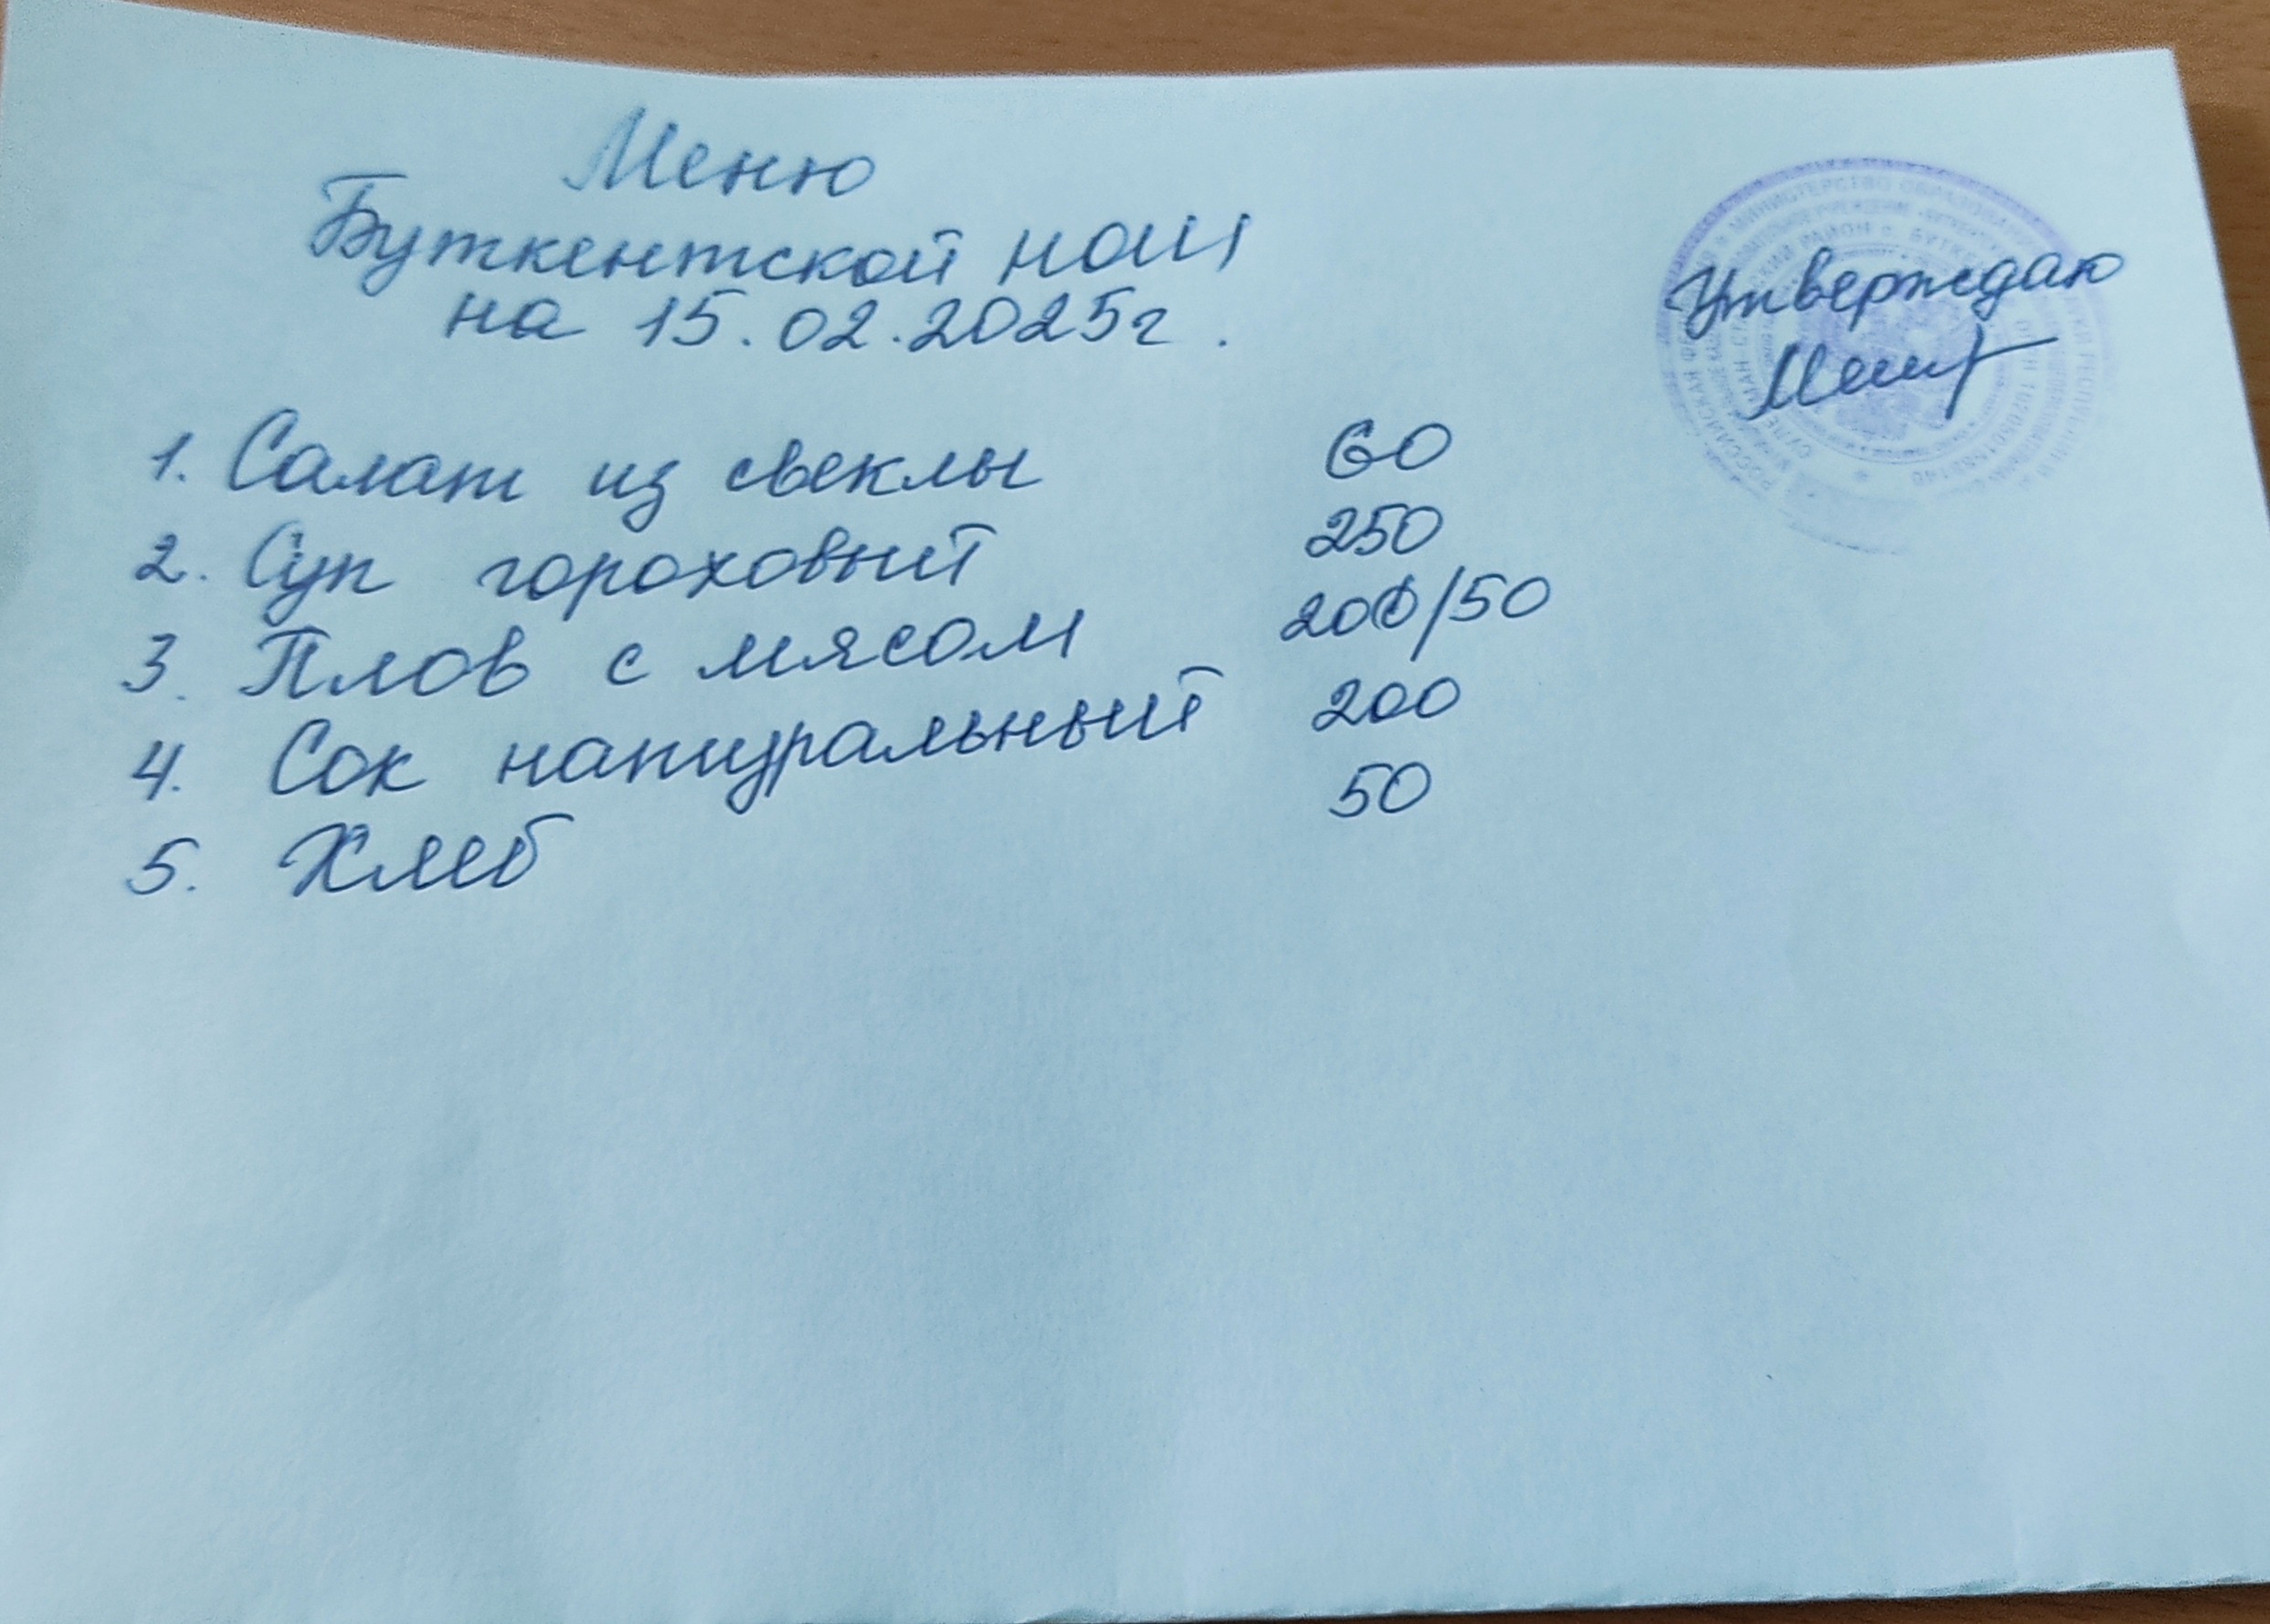 Меню
Буткентской нош
на 15.02.2025г.
Утверждаю
1. Салат из свеклы 60
2. Суп гороховый 250
3. Плов с мясом 200/50
4. Сок натуральный 200
5. Хлеб 50
МИНИСТЕРСТВО ОБРАЗОВАНИЯ
РАЙОН с. БУТК